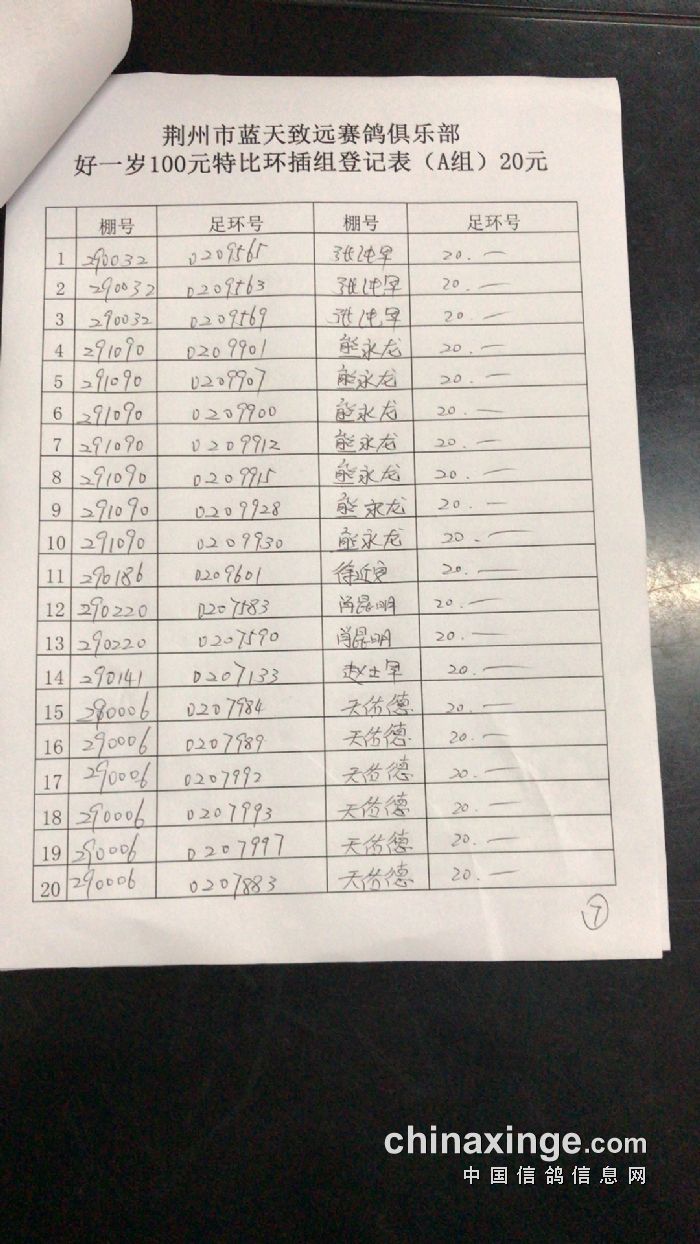 荆州市蓝天致远赛鸽俱乐部
好一岁100元特比环插组登记表（A组）20元
棚号 足环号 棚号 足环号
1 290032 0209565 20.一
2 290032 0209563 20.一
3 290032 0209569 20.一
4 291090 0209901 熊永龙 20.一
5 291090 0209907 熊永龙 20.一
6 291090 0209900 熊永龙 20.一
7 291090 0209912 熊永龙 20.一
8 291090 0209915 熊永龙 20.一
9 291090 0209928 熊永龙 20.一
10 291090 0209930 熊永龙 20.一
11 290186 0209601 20.一
12 290220 0207583 肖昆明 20.一
13 290220 0207590 肖昆明 20.一
14 290141 0207133 20.一
15 290006 0207984 天佑德 20.一
16 290006 0207989 天佑德 20.一
17 290006 0207992 天佑德 20.一
18 290006 0207993 天佑德 20.一
19 290006 0207997 天佑德 20.一
20 290006 0207883 天佑德 20.一
7
chinaxinge.com
中国信鸽信息网